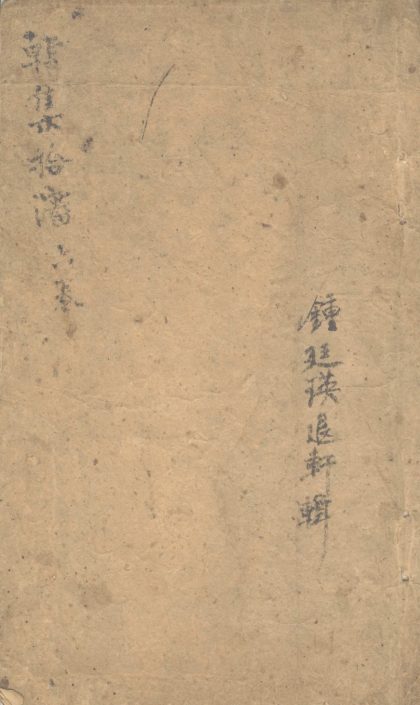 韓集拾瀋六卷
鍾廷瑛退軒輯